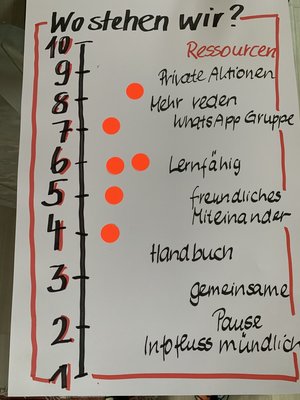 Wo stehen wir?
10
Ressourcen
9
Private Aktionen
8
Mehr reden
WhatsApp Gruppe
7
6
Lernfähig
5
freundliches
Miteinander
4
Handbuch
3
gemeinsame
Pause
2
Infofluss mündlich
1